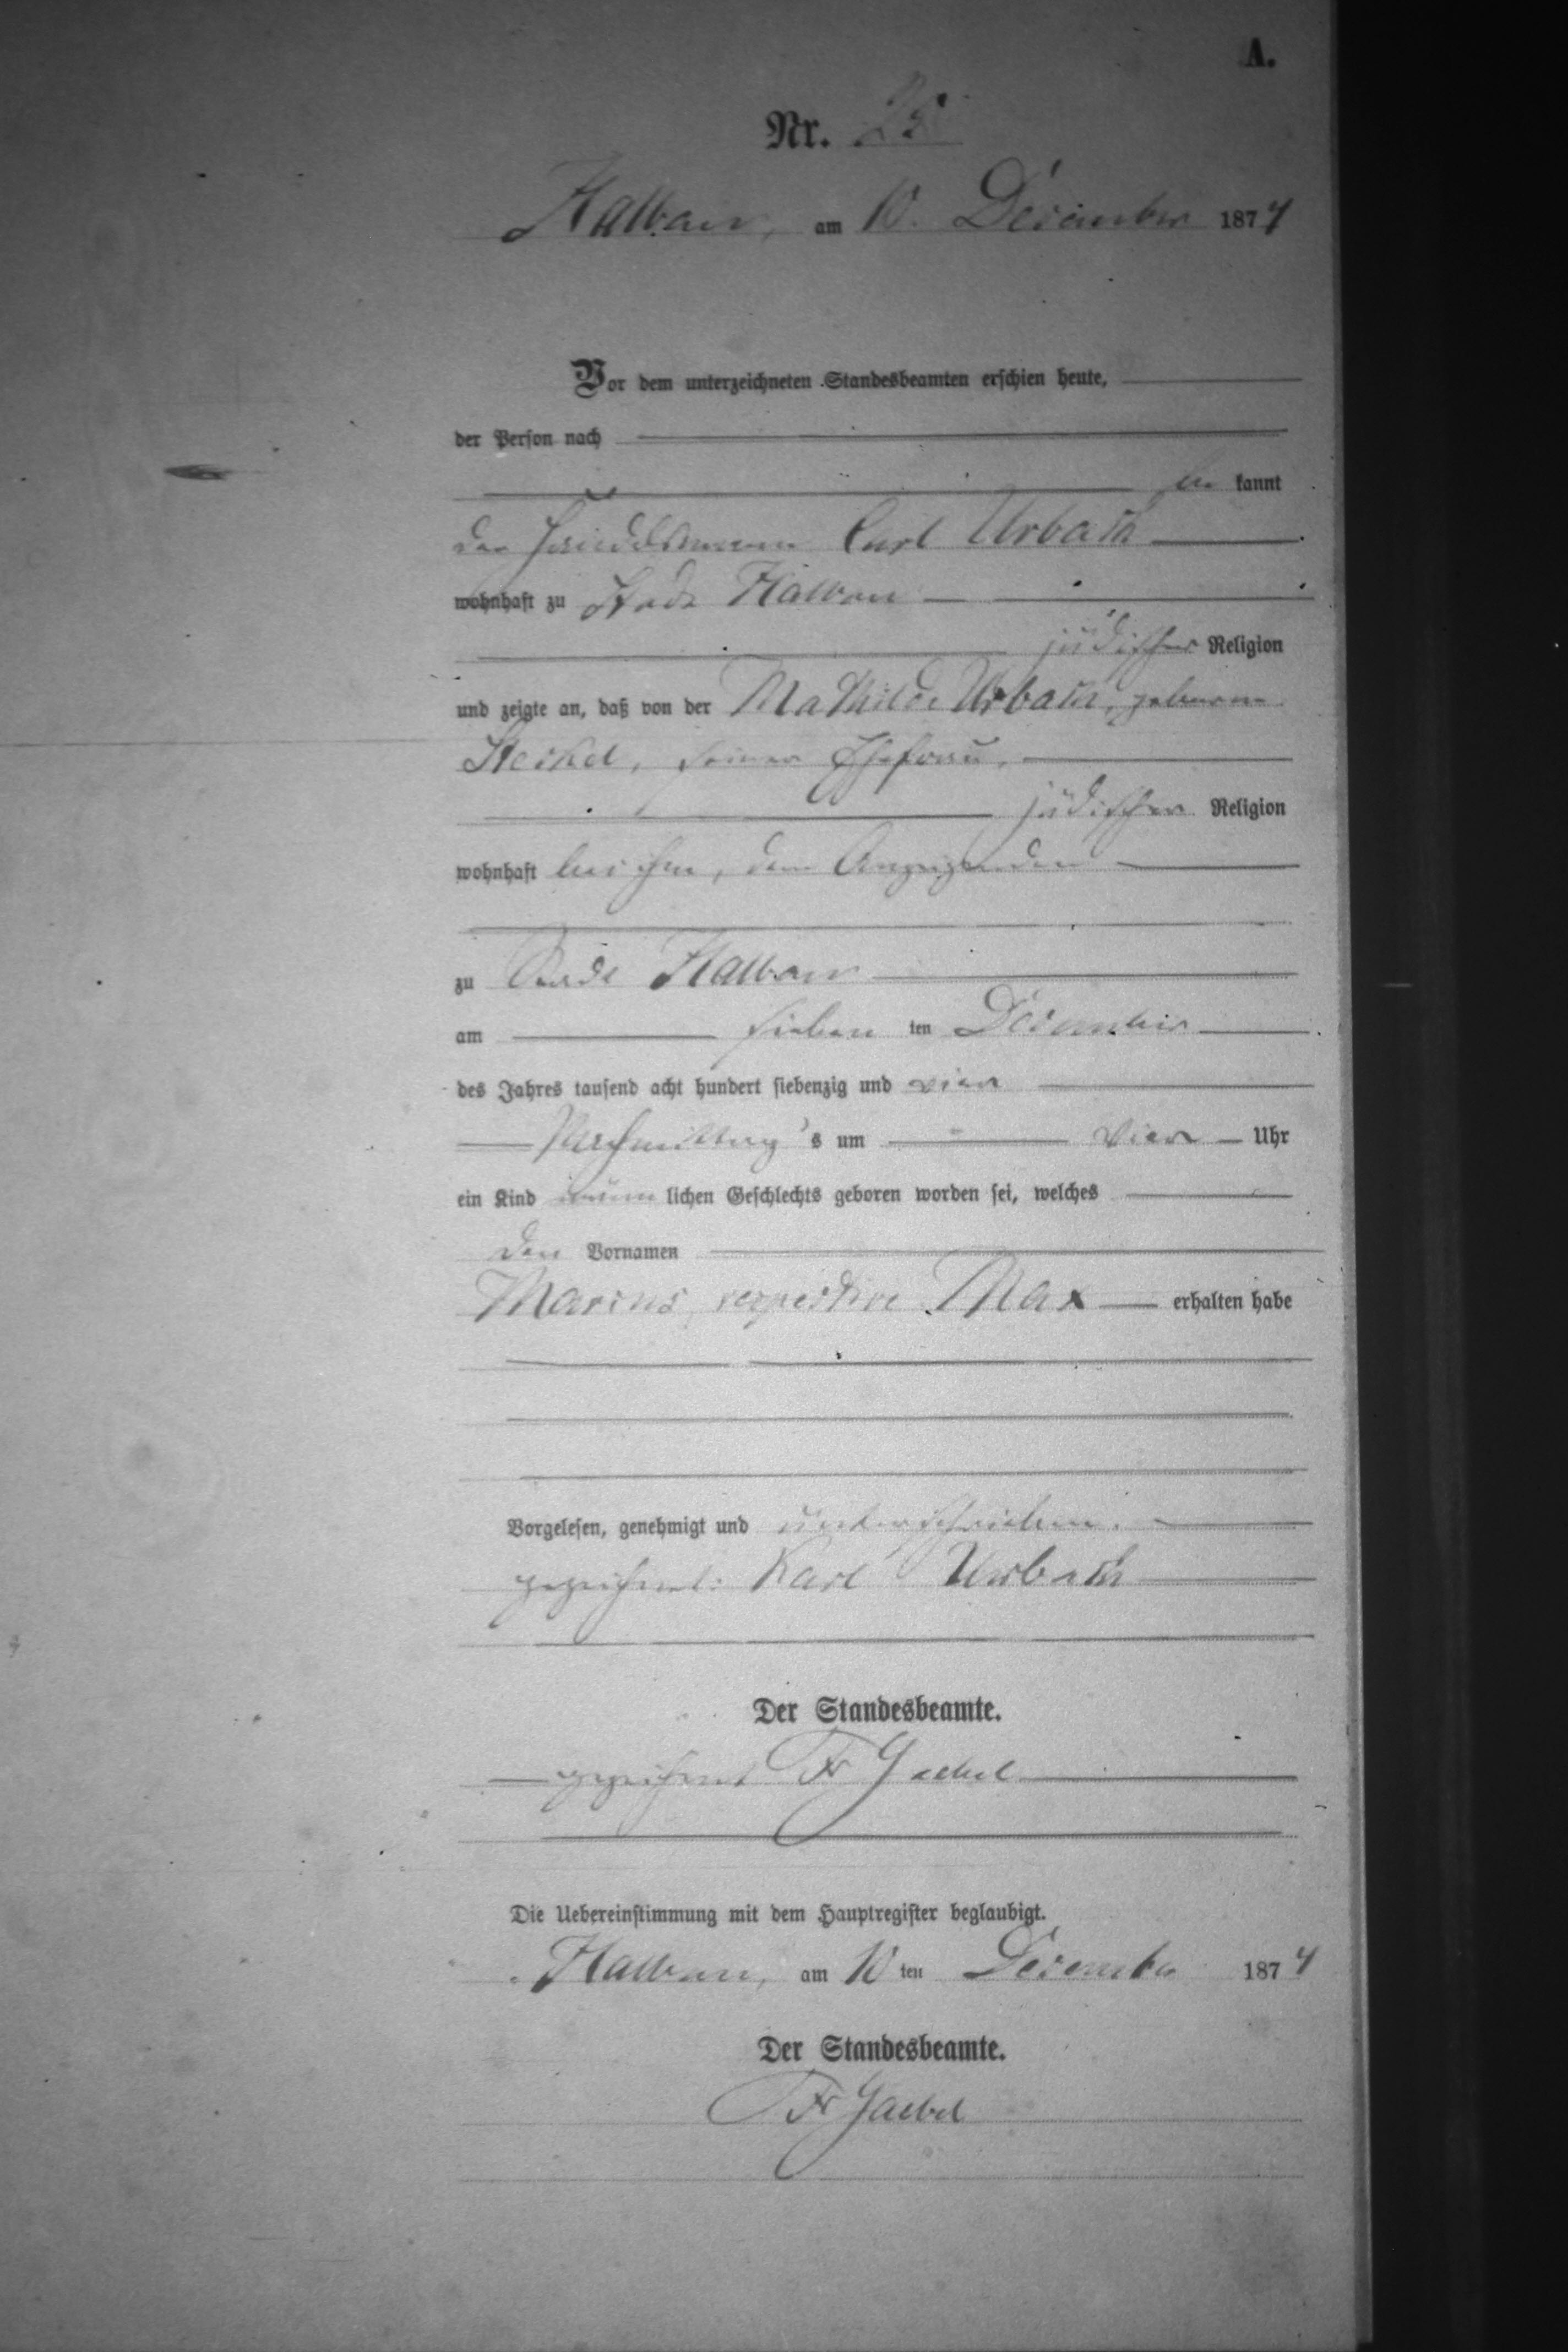 A.
Nr. 25
Halbau, am 10. December 1874
Vor dem unterzeichneten Standesbeamten erschien heute,
der Person nach
be kannt
der Handelsmann Carl Urbach
wohnhaft zu Stadt Halbau
jüdischer Religion
und zeigte an, daß von der Mathilde Urbach, geborne
Steckel, seiner Ehefrau,
jüdischer Religion
wohnhaft bei ihm, dem Anzeigenden
zu Stadt Halbau
am sieben ten December
des Jahres tausend acht hundert siebenzig und vier
Nachmittag's um vier Uhr
ein Kind männ lichen Geschlechts geboren worden sei, welches
den Vornamen
Marcus, respective Max erhalten habe
Vorgelesen, genehmigt und unterschrieben.
gezeichnet: Karl Urbach
Der Standesbeamte.
gezeichnet Fr Gaebel
Die Uebereinstimmung mit dem Hauptregister beglaubigt.
Halbau, am 10 ten December 1874
Der Standesbeamte.
Fr Gaebel